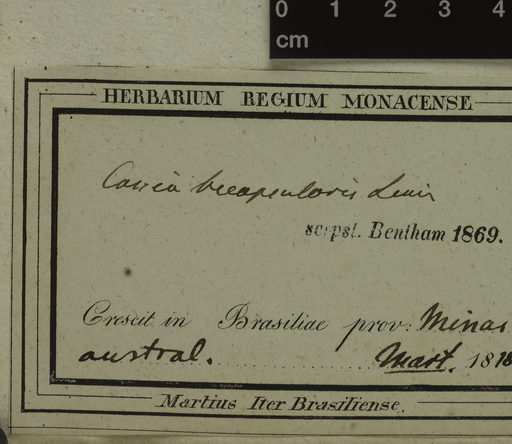 0 1 2 3 4
cm
HERBARIUM REGIUM MONACENSE
Cassia bicapsularis Linn
scrpst. Bentham 1869.
Crescit in Brasiliae prov: Minas
austral. Mart. 1818
Martius Iter Brasiliense.